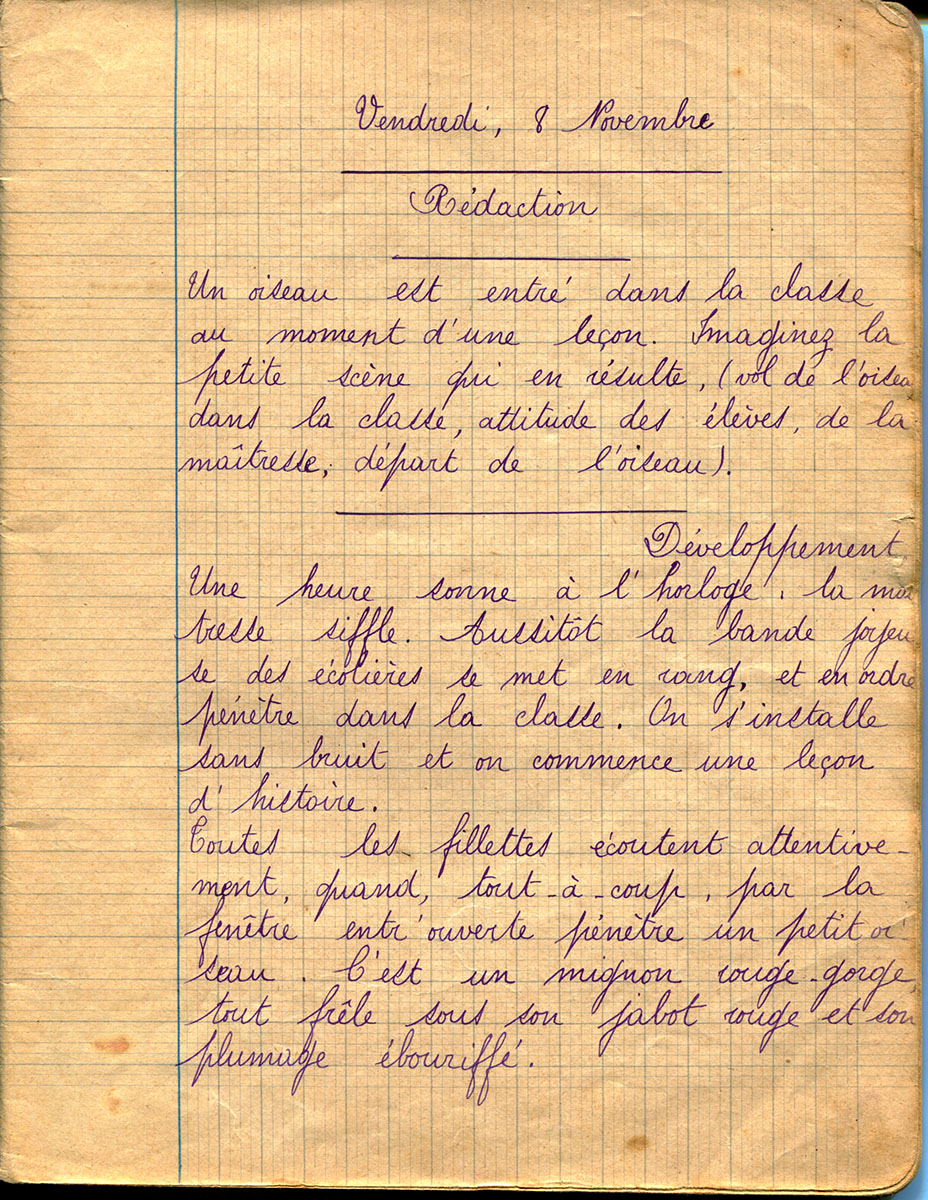 Vendredi, 8 Novembre
Rédaction
Un oiseau est entré dans la classe
au moment d'une leçon. Imaginez la
petite scène qui en résulte, (vol de l'oisea
dans la classe, attitude des élèves, de la
maîtresse, départ de l'oiseau).
Développement
Une heure sonne à l'horloge, la maî
tresse siffle. Aussitôt la bande joyeu
se des écolières se met en rang, et en ordre
pénètre dans la classe. On s'installe
sans bruit et on commence une leçon
d'histoire.
Toutes les fillettes écoutent attentive-
ment, quand, tout-à-coup, par la
fenêtre entr'ouverte pénètre un petit oi
seau. C'est un mignon rouge-gorge,
tout frêle sous son jabot rouge et son
plumage ébouriffé.